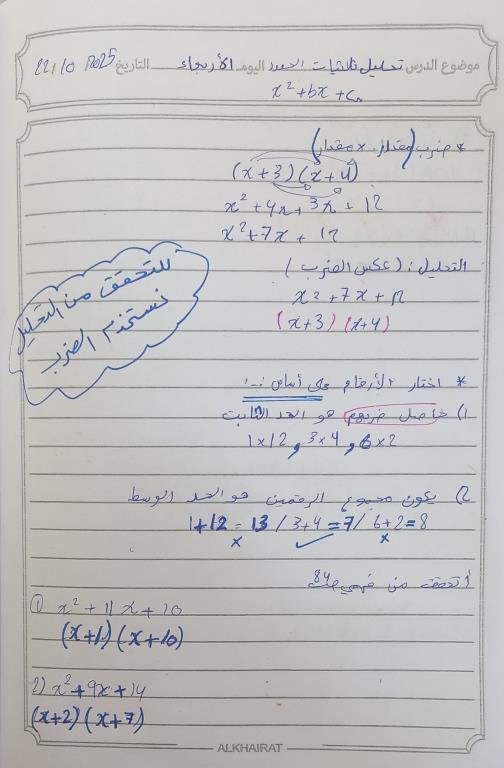 موضوع الدرس تحليل ثلاثيات الحدود اليوم الأربعاء التاريخ 22/10 2025
x² + bx + c
* ضرب (مقدار × مقدار)
(x+3)(x+4)
x² + 4x + 3x + 12
x² + 7x + 12
التحليل : (عكس الضرب)
x² + 7x + 12
(x+3) (x+4)
للتحقق من التحليل
نستخدم الضرب
* اختار الأرقام على أساس :-
1) حاصل ضربهم هو الحد الثابت
1x12 , 3x4 , 6x2
2) يكون مجموع الرقمين هو الحد الوسط
1+12 = 13 / 3+4 = 7 / 6+2 = 8
x ✓ x
أتحقق من فهمي ص84
① x² + 11x + 10
(x+1) (x+10)
2) x² + 9x + 14
(x+2) (x+7)
ALKHAIRAT